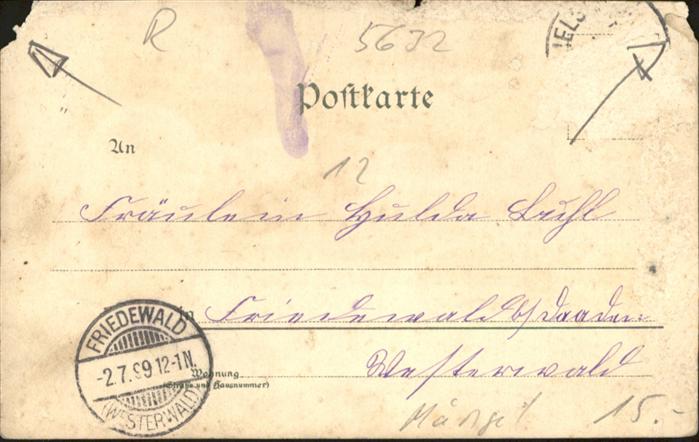 R 5632
Postkarte
An
12
Fräulein Hulda Buhl
in Friedewald b/ Daaden
Westerwald
FRIEDEWALD
-2.7.99 12-1N.
(WESTERWALD)
Wohnung
(Straße und Hausnummer)
15.-